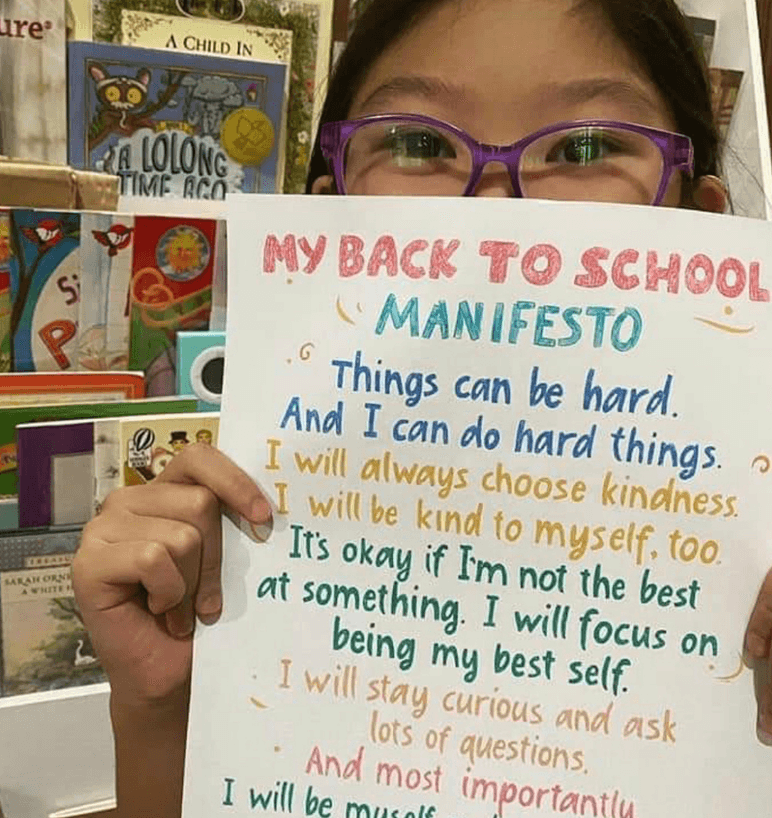 ure
A CHILD IN
A LOLONG
TIME AGO
Si
P
SARAH ORNE
A WHITE H
MY BACK TO SCHOOL
MANIFESTO
Things can be hard.
And I can do hard things.
I will always choose kindness.
I will be kind to myself, too.
It's okay if I'm not the best
at something. I will focus on
being my best self.
I will stay curious and ask
lots of questions.
And most importantly
I will be myself